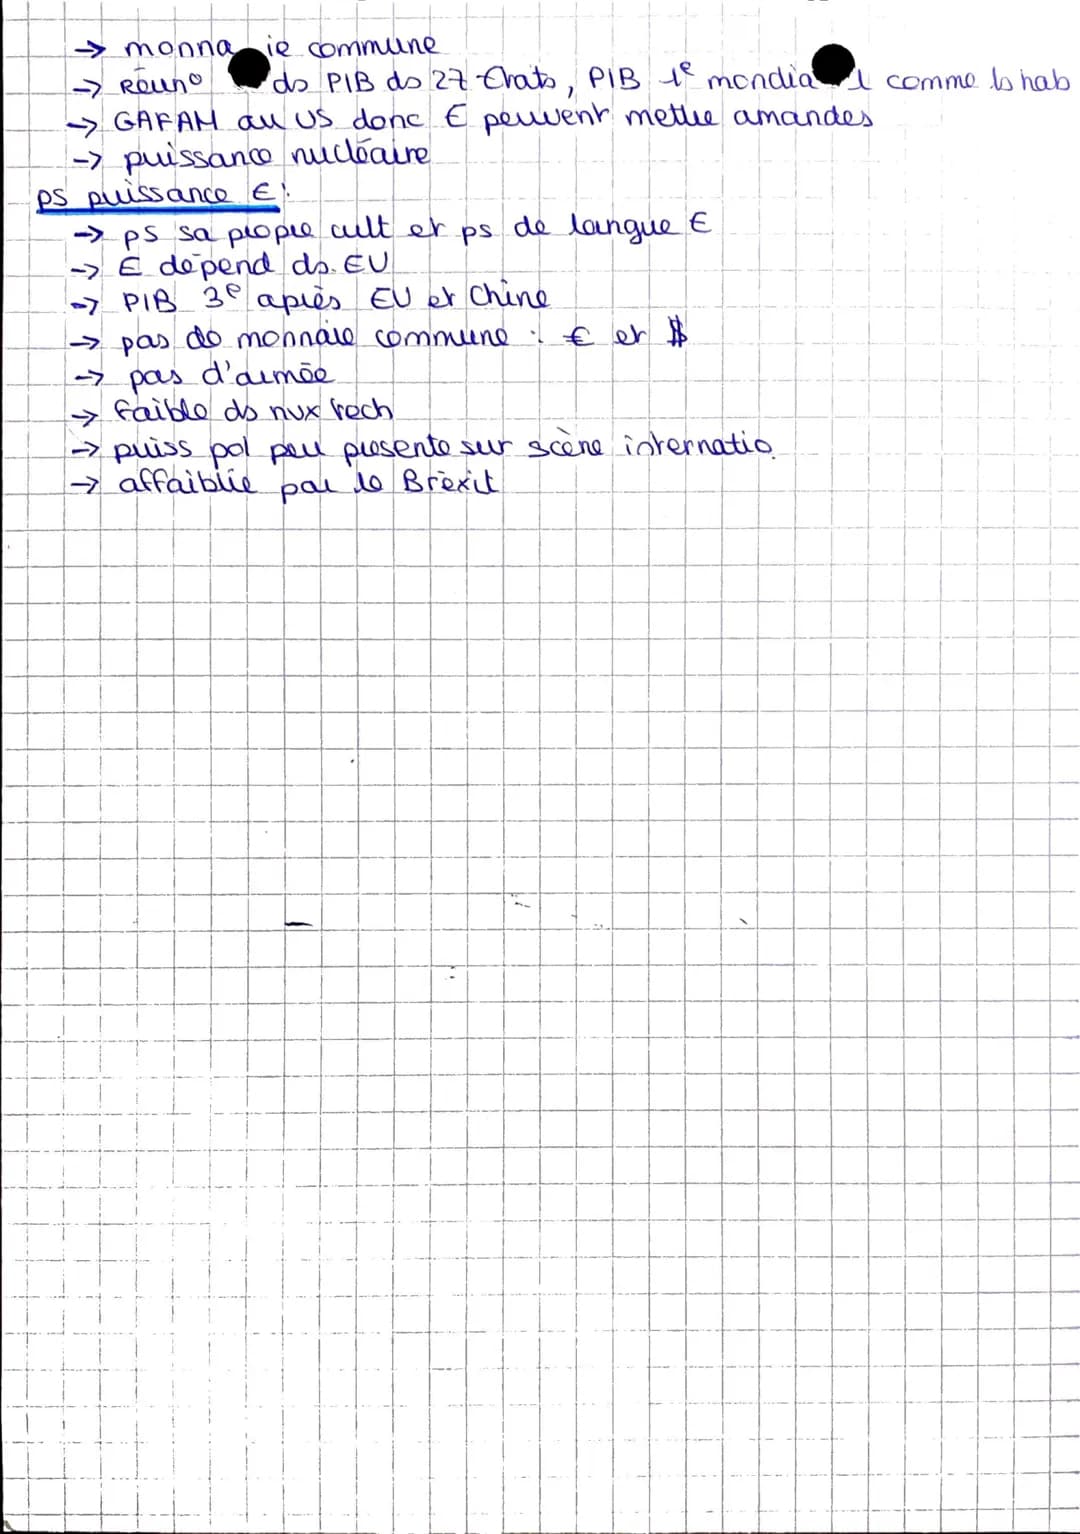 → monnaie commune
→ Réun° ds PIB ds 27 États, PIB 1e mondial comme ls hab
→ GAFAM au US donc € peuvent mettre amandes
→ puissance nucléaire
ps puissance € :
→ ps sa propre cult et ps de langue €
→ € dépend ds EU
→ PIB 3e après EU et Chine
→ pas de monnaie commune : € et $
→ pas d'armée
→ faible ds nvx tech
→ puiss pol peu présente sur scène internatio
→ affaiblie par le Brexit